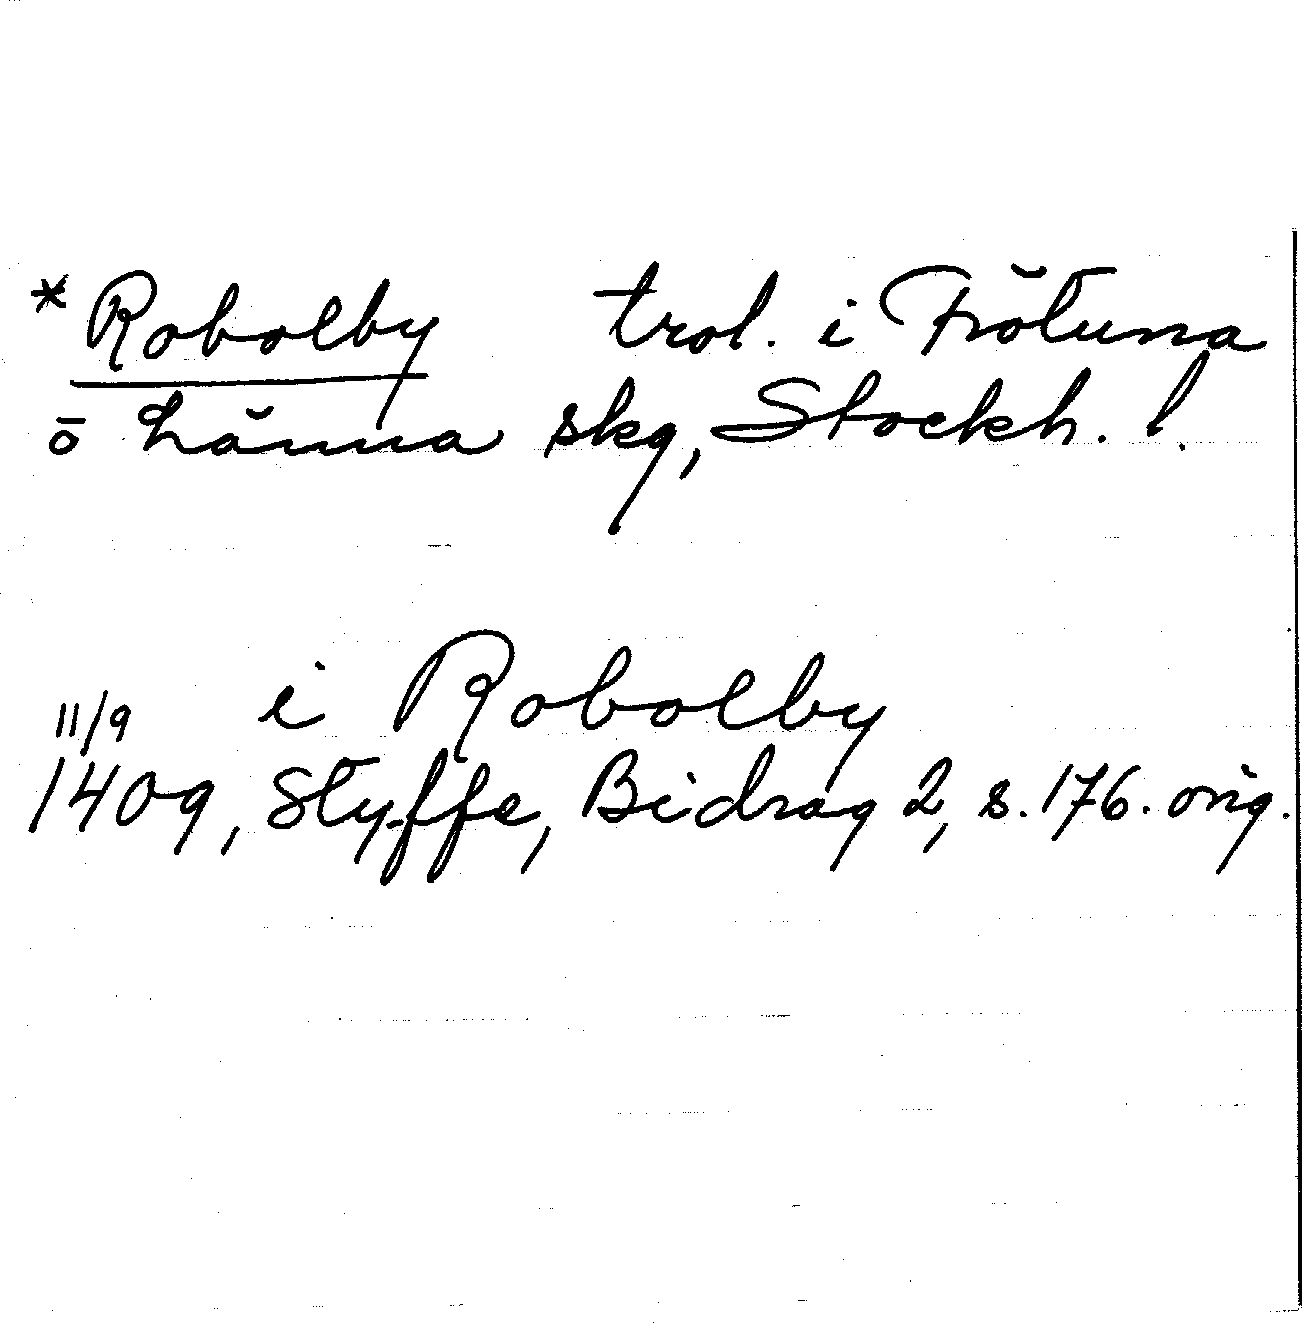 *Robolby trol. i Frötuna
o Länna skg, Stockh. l.
i Robolby
11/9
1409, Styffe, Bidrag 2, s. 176. orig.